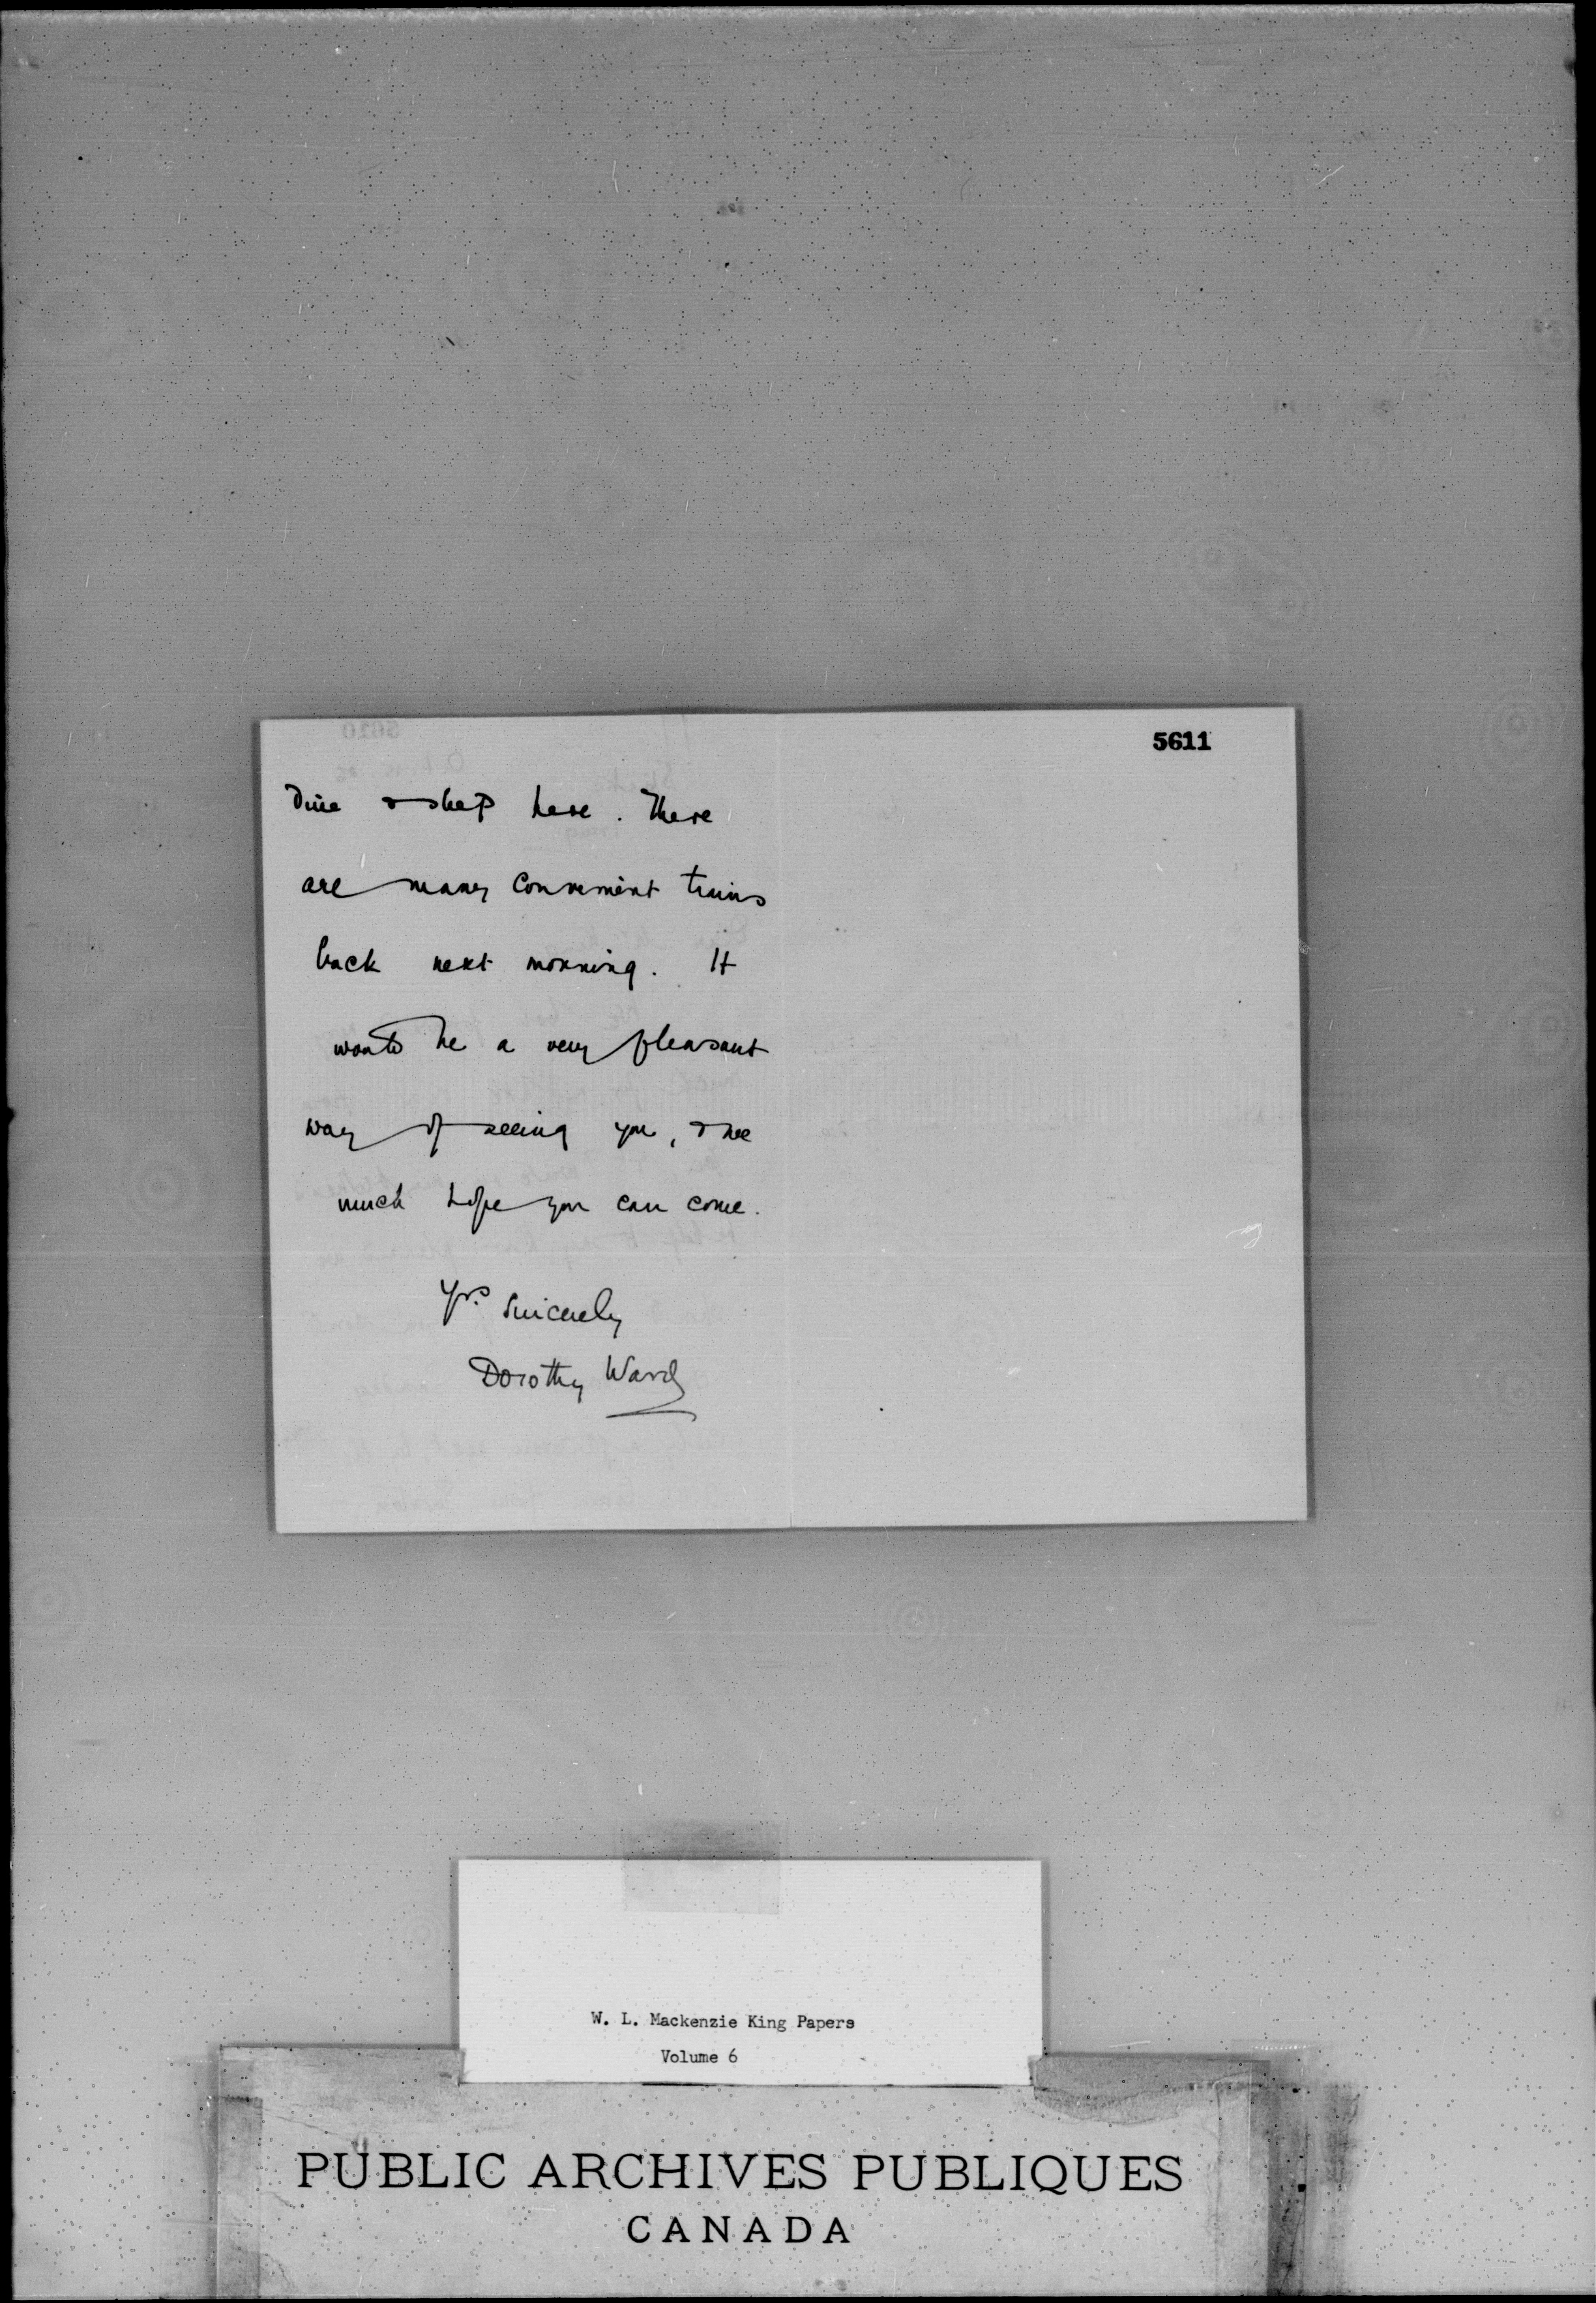 5611
dine & sleep here. There
are many convenient trains
back next morning. It
would be a very pleasant
way of seeing you, & we
much hope you can come.
Yrs. sincerely
Dorothy Ward
W. L. Mackenzie King Papers
Volume 6
PUBLIC ARCHIVES PUBLIQUES
CANADA